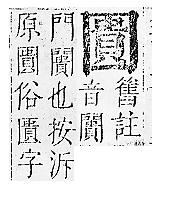 圚
舊註
音闠
門闠也按泝
原圚俗匱字